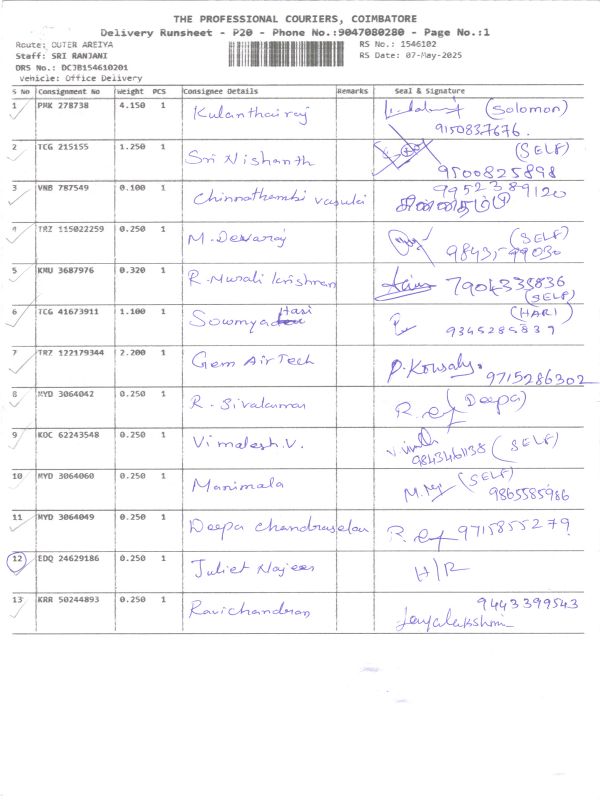 THE PROFESSIONAL COURIERS, COIMBATORE
Delivery Runsheet - P20 - Phone No.:9047080280 - Page No.:1
Route: OUTER AREIYA RS No.: 1546102
Staff: SRI RANJANI RS Date: 07-May-2025
DRS No.: DCJB154610201
Vehicle: Office Delivery
S No Consignment No Weight PCS Consignee Details Remarks Seal & Signature
1 PMK 278738 4.150 1 Kulanthairaj (Solomon)
9150837676.
2 TCG 215155 1.250 1 Sri Nishanth (SELF)
9500825898
3 VNB 787549 0.100 1 Chinnathambi Vasuki 9952389120
சின்னதம்பி
4 TRZ 115022259 0.250 1 M. Devaraj (SELF)
99030
5 KMU 3687976 0.320 1 R. Murali Krishnan 7904333836
(SELF)
6 TCG 41673911 1.100 1 Sowmya Hari (HARI)
9345285839
7 TRZ 122179344 2.200 1 Gem Air Tech P. Kowsaly.
9715286302
8 MYD 3064042 0.250 1 R. Sivakumar R. (Deepa)
9 KOC 62243548 0.250 1 Vimalesh.V. (SELF)
10 MYD 3064060 0.250 1 Manimala (SELF)
9865585986
11 MYD 3064049 0.250 1 Deepa Chandrasekar R. 9715855279
12 EDQ 24629186 0.250 1 Juliet H/R
13 KRR 50244893 0.250 1 Ravichandran 9443399543
Jayalakshmi